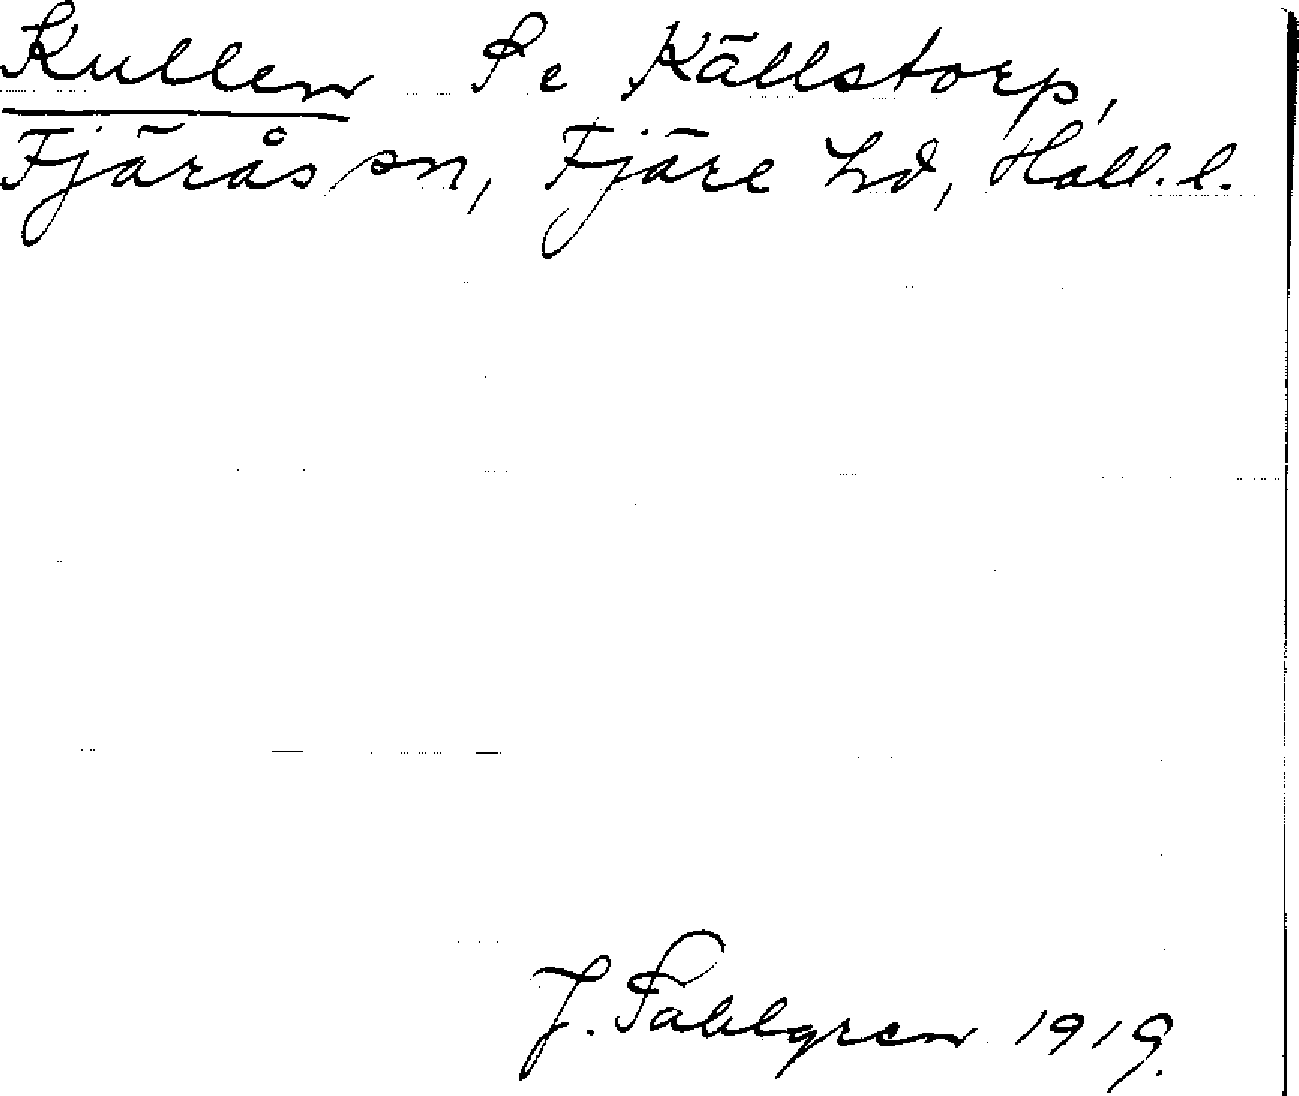 Kullen Se Källstorp,
Fjärås sn, Fjäre hd, Hall. l.
J. Sahlgren 1919.